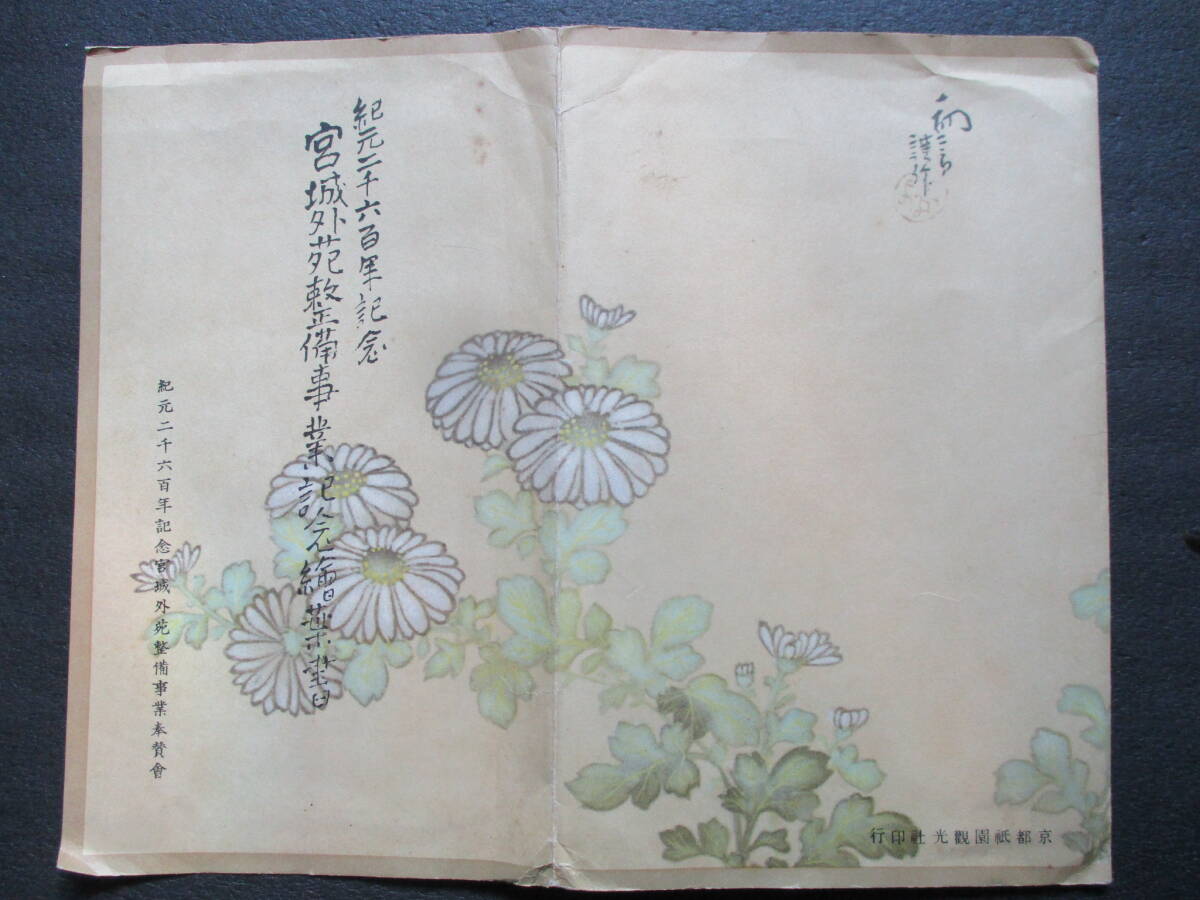 紀元二千六百年記念
宮城外苑整備事業記念繪葉書
紀元二千六百年記念宮城外苑整備事業奉賛會
京都祇園觀光社印行